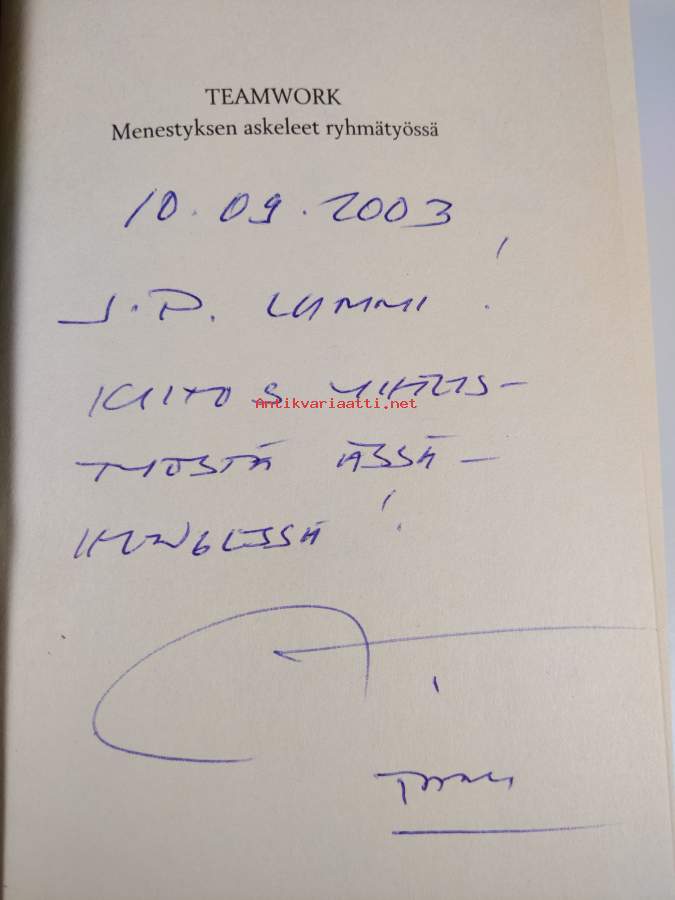 TEAMWORK
Menestyksen askeleet ryhmätyössä
10.09.2003
J.P. LUMMI!
KIITOS YHTEIS-
TYÖSTÄ ÄSSÄ-
HENGESSÄ!
Antikvariaatti.net